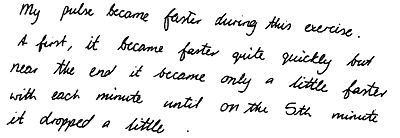 My pulse became faster during this exercise.
A first, it became faster quite quickly but
near the end it became only a little faster
with each minute until on the 5th minute
it dropped a little.